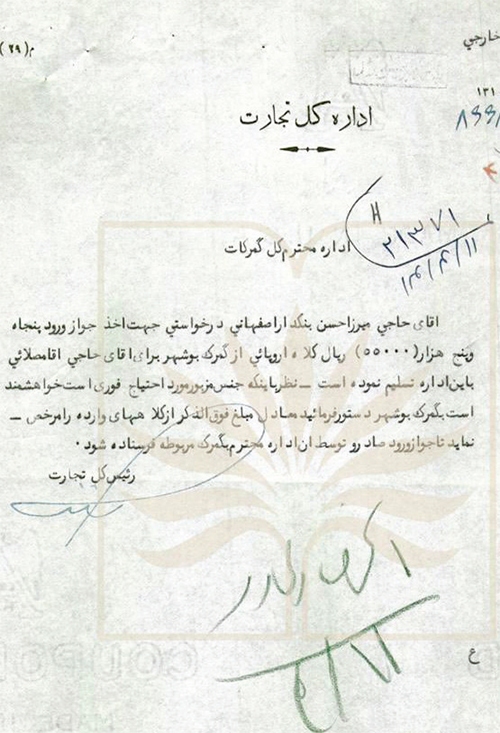 خارجي
م(٢٩)
١٣١
اداره كل تجارت
H
٢١٣٧١
١١/٤/١٤
اداره محترم كل گمركات
اقاى حاجي ميرزا حسن بنكدار اصفهاني درخواستي جهت اخذ جواز ورود پنجاه
وپنج هزار(٥٥٠٠٠) ريال كلاه اروپائي از گمرك بوشهر براى اقاى حاجي اقا مصلائي
باين اداره تسليم نموده است ــ نظر باينكه جنس مزبور مورد احتياج فورى است خواهشمند
است بگمرك بوشهر دستور فرمائيد معادل مبلغ فوق الذكر از كلاه هاى وارده را مرخص ــ
نمايد تا جواز ورود صادر و توسط ان اداره محترم بگمرك مربوطه فرستاده شود ·
رئيس كل تجارت
ع